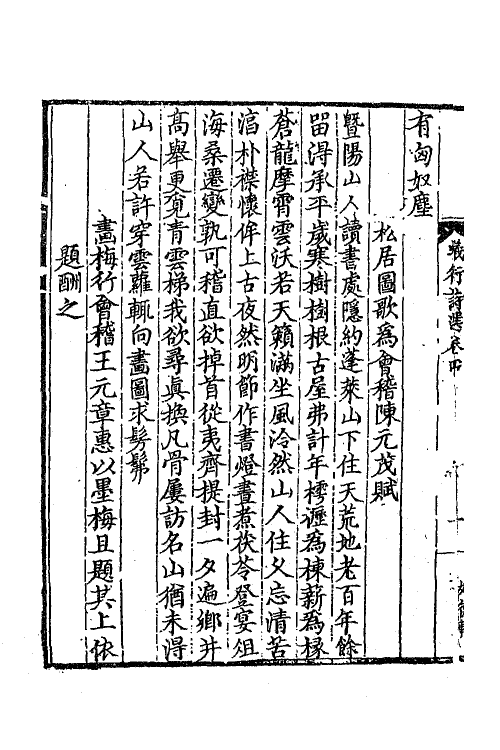 有匈奴塵
松居圖歌為會稽陳元茂賦
暨陽山人讀書處隱約蓬萊山下住天荒地老百年餘
留得承平歲寒樹樹根古屋弗計年樗瀝為棟薪為椽
蒼龍摩霄雲沃若天籟滿坐風泠然山人住久忘清苦
滔朴襟懷侔上古夜然明節作書燈晝煮茯苓登宴俎
海桑遷變孰可稽直欲掉首從夷齊提封一夕遍鄉井
高舉更覓青雲梯我欲尋真換凡骨屢訪名山猶未得
山人若許穿雲蘿輒向畫圖求髣髴
畫梅行會稽王元章惠以墨梅且題其上依
題酬之
行詩選卷四